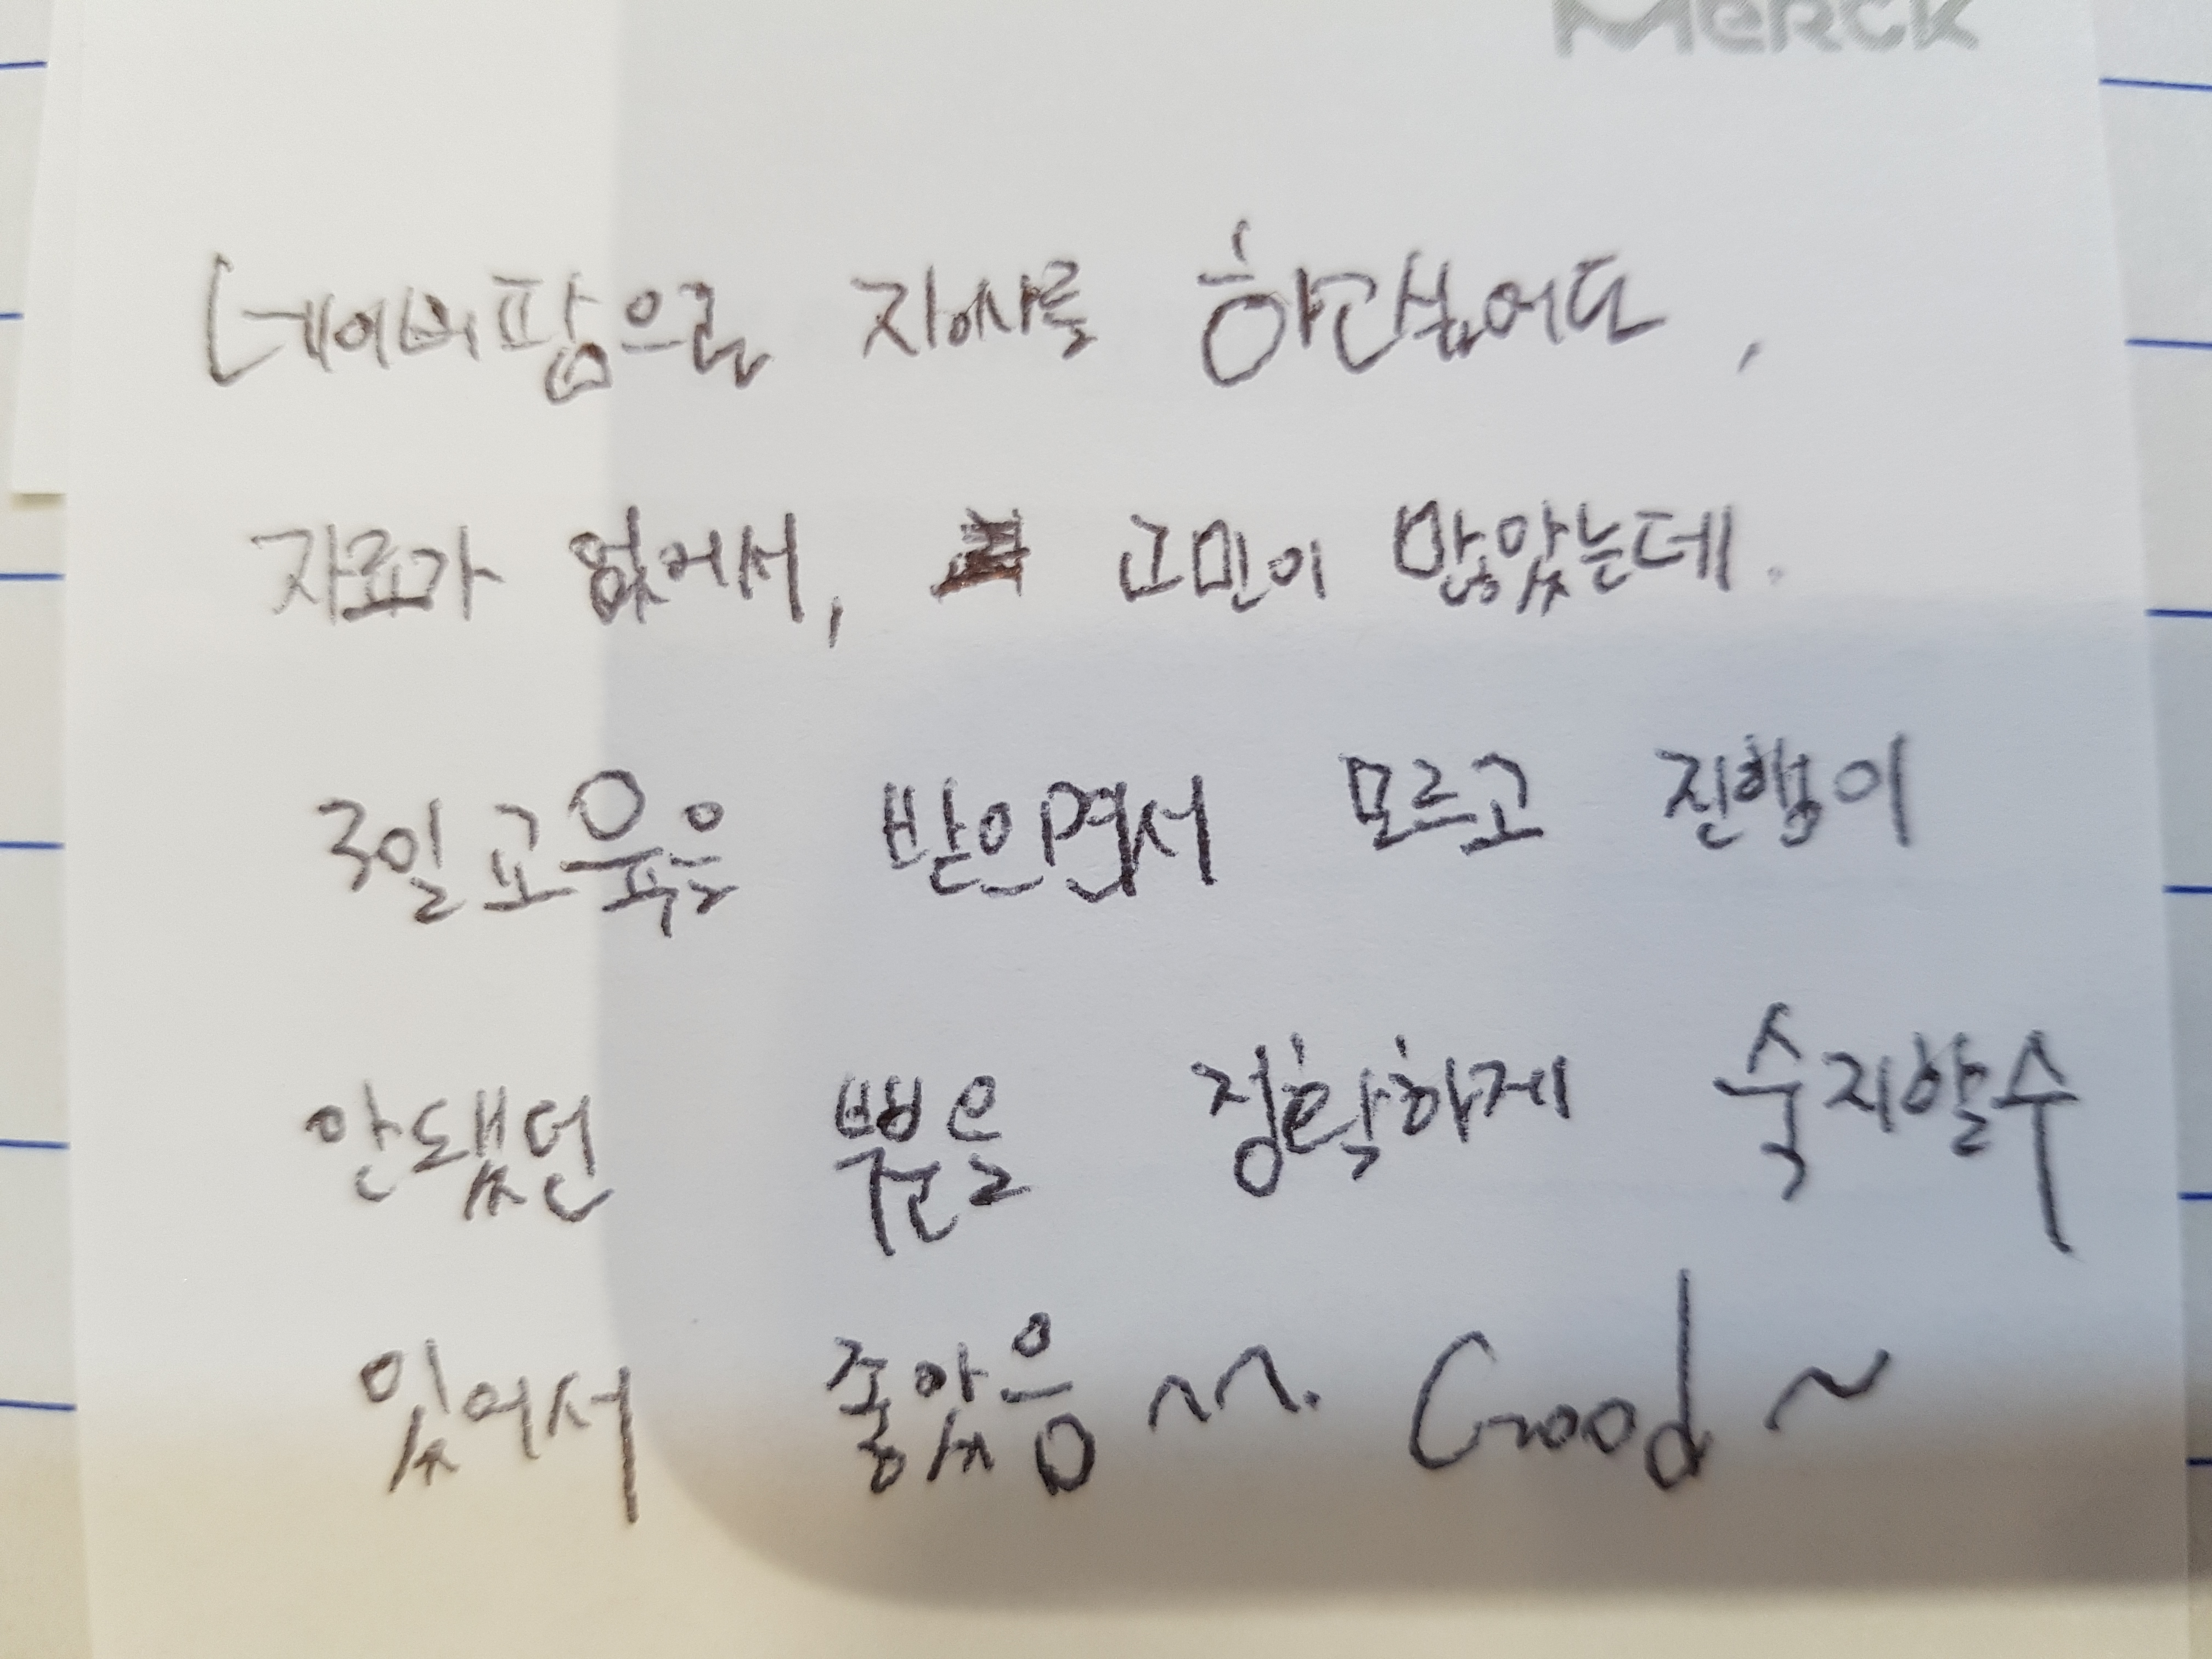 Merck
네이버팜으로 지사를 하고싶어도,
자료가 없어서, 고민이 많았는데.
3일 교육을 받으면서 모르고 진행이
안됐던 뿐을 정확하게 숙지할수
있어서 좋았음 ~~. Good ~